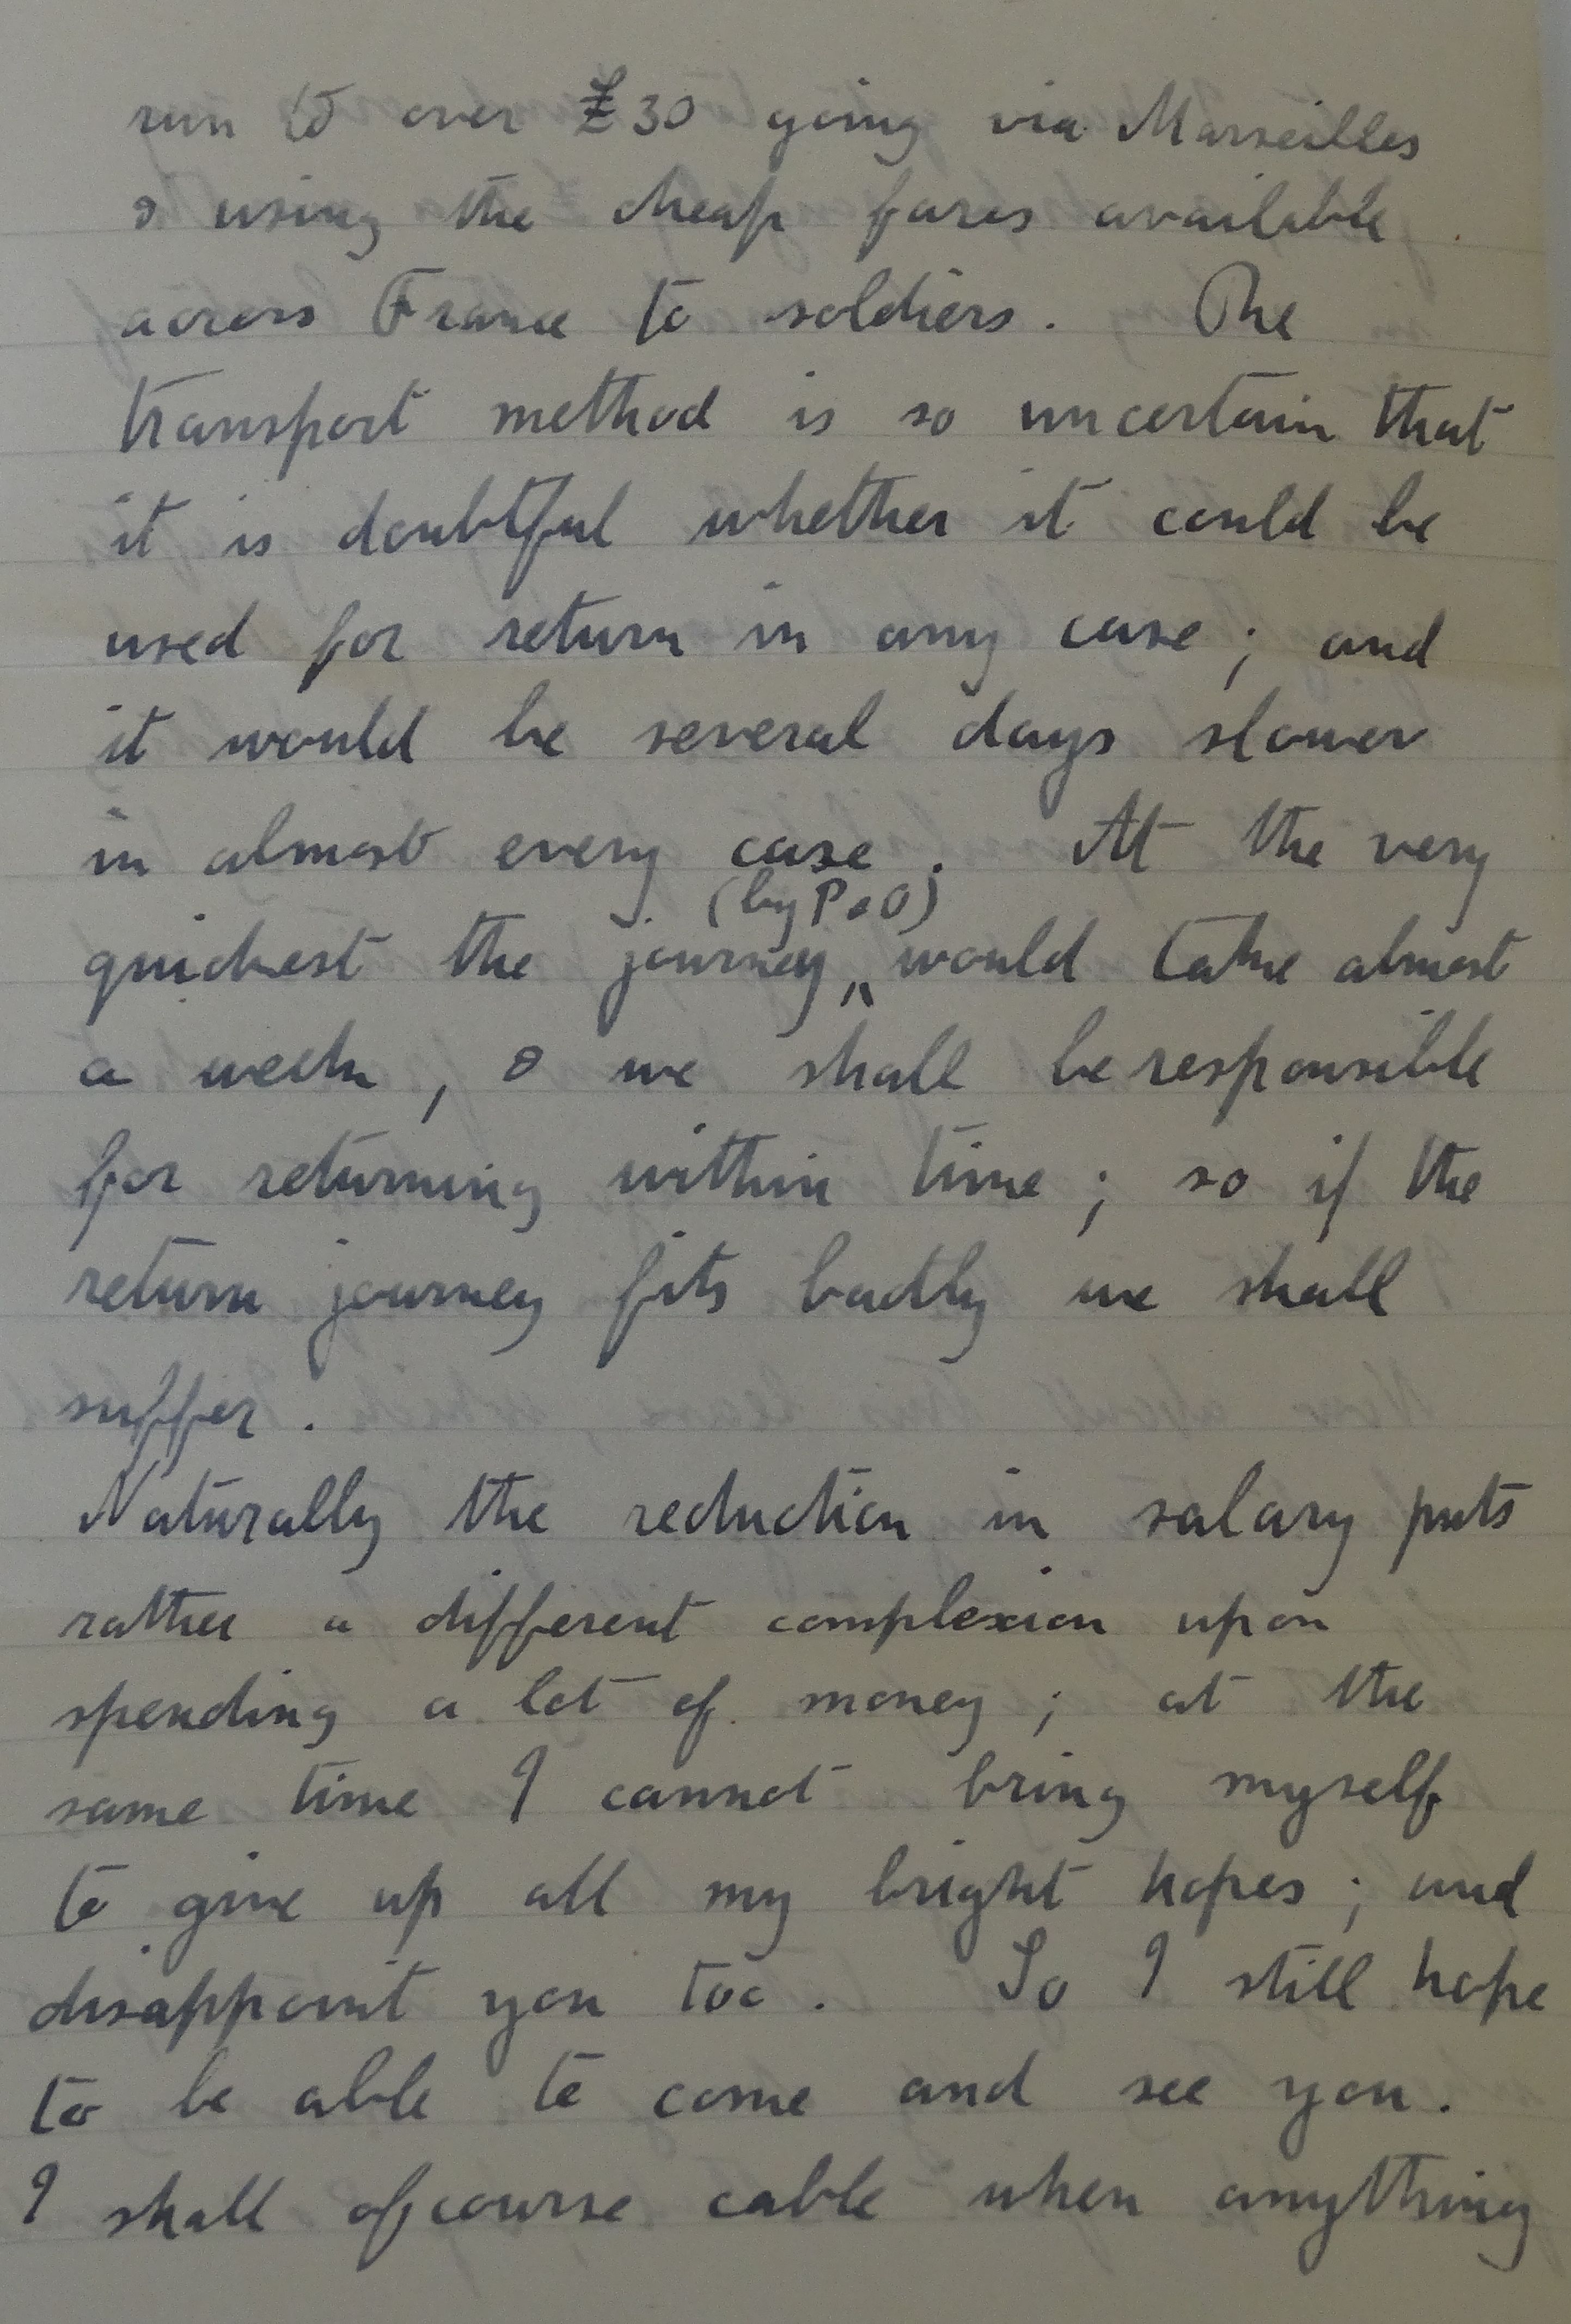 run to over £30 going via Marseilles
& using the cheap fares available
across France to soldiers. The
transport method is so uncertain that
it is doubtful whether it could be
used for return in any case; and
it would be several days slower
in almost every case. At the very
(by P & O)
quickest the journey would take almost
a week, & we shall be responsible
for returning within time; so if the
return journey fits badly we shall
suffer.
Naturally the reduction in salary puts
rather a different complexion upon
spending a lot of money; at the
same time I cannot bring myself
to give up all my bright hopes; and
disappoint you too. So I still hope
to be able to come and see you.
I shall of course cable when anything